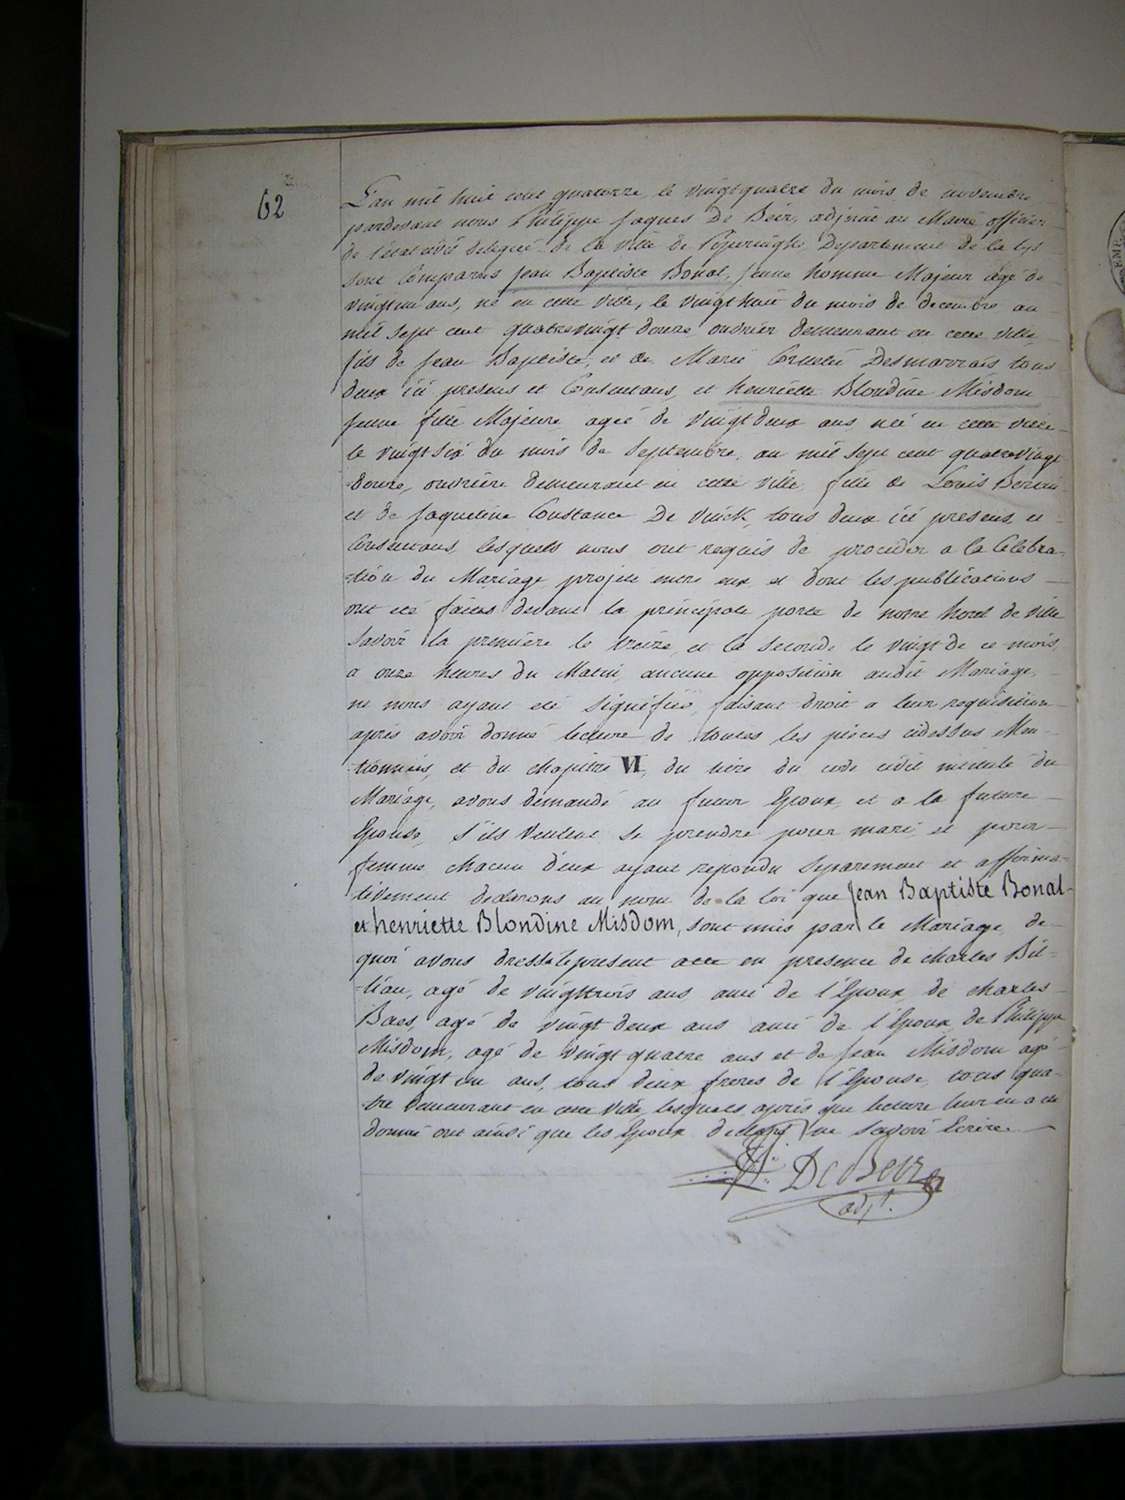 62
L'an mil huit cent quatorze, le vingtquatre du mois de novembre
pardevant nous Philippe Jaques De Beir, adjoint au Maire officier
de l'etat civil delegué de la ville de Poperinghe Departement de la Lys
sont Comparus Jean Baptiste Bonal, jeune homme Majeur agé de
vingtun ans, né en cette ville, le vingt huit du mois de decembre an
mil sept cent quatrevingt douze ouvrier demeurant en cette ville,
fils de Jean Baptiste, et de Marie Cornelie Desmarrais, tous
deux ici presens et Consentans, et henriette Blondine Misdom
jeune fille Majeure ageé de vingt deux ans neé en cette ville
le vingt six du mois de Septembre, an mil sept cent quatrevingt
douze, ouvrière demeurant en cette ville, fille de Louis
et de Jaqueline Constance De Vinck, tous deux ici presens, et
Consentans, lesquels nous ont requis de proceder a la Celebra-
-tion du Mariage projeté entre eux, et dont les publications
ont eté faites devant la principale porte de notre hotel de ville
Savoir la première le treize, et la seconde le vingt de ce mois,
a onze heures du Matin, aucune opposition audit Mariage,
ne nous ayant eté signifieé, faisant droit a leur requisition
après avoir donné lecture de toutes les pièces cidessus Men-
-tionneés, et du chapitre VI, du titre du code civil intitulé du
Mariage, avons demandé au futur Epoux, et a la future
Epouse, s'ils veulent se prendre pour mari et pour
femme, chacun d'eux ayant repondu separement et affirma-
-tivement declarons au nom de la loi que Jean Baptiste Bonal-
et henriette Blondine Misdom, sont unis par le Mariage, de
quoi avons dressé le present acte en presence de Charles Bil-
-liau, agé de vingttrois ans ami de l'Epoux, de Charles
Baes, agé de vingt deux ans ami de l'Epoux, de Philippe
Misdom, agé de vingt quatre ans et de Jean Misdom agé
de vingt un ans, tous deux freres de l'Epouse, tous qua-
-tre demeurant en cette ville, lesquels après que lecture leur en a eté
donné ont ainsi que les Epoux declaré ne savoir Ecrire.
De Beir
adjt.